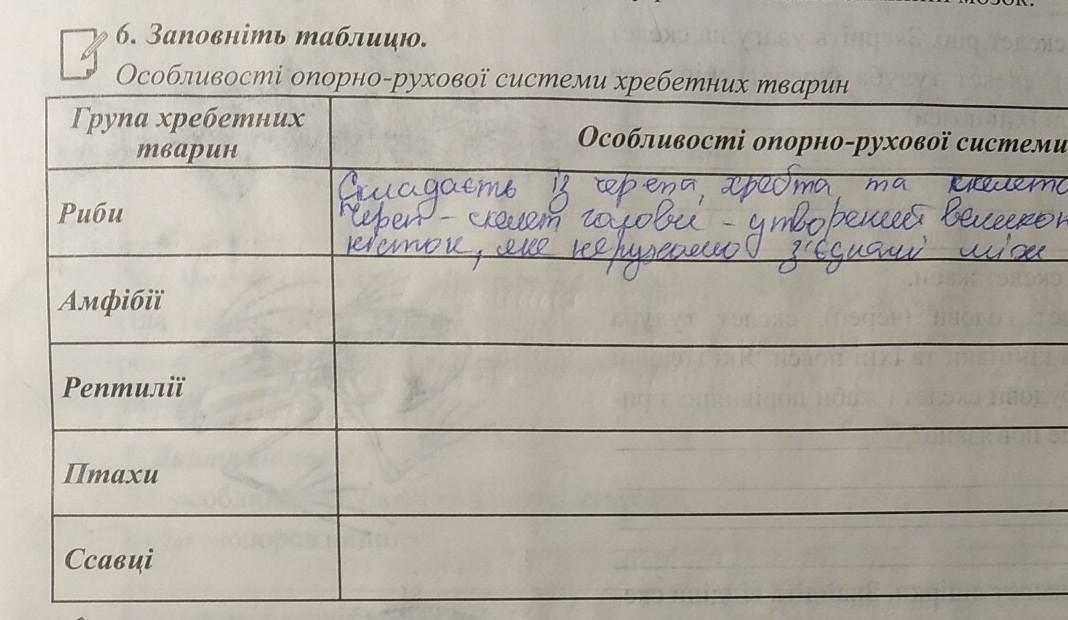 мозок.
6. Заповніть таблицю.
Особливості опорно-рухової системи хребетних тварин
Група хребетних тварин
Особливості опорно-рухової системи
Риби
Складаєть із черепа, хребта та
Череп - скелет голови - утворений
кісток, яке нерухомо з'єднані між
Амфібії
Рептилії
Птахи
Ссавці